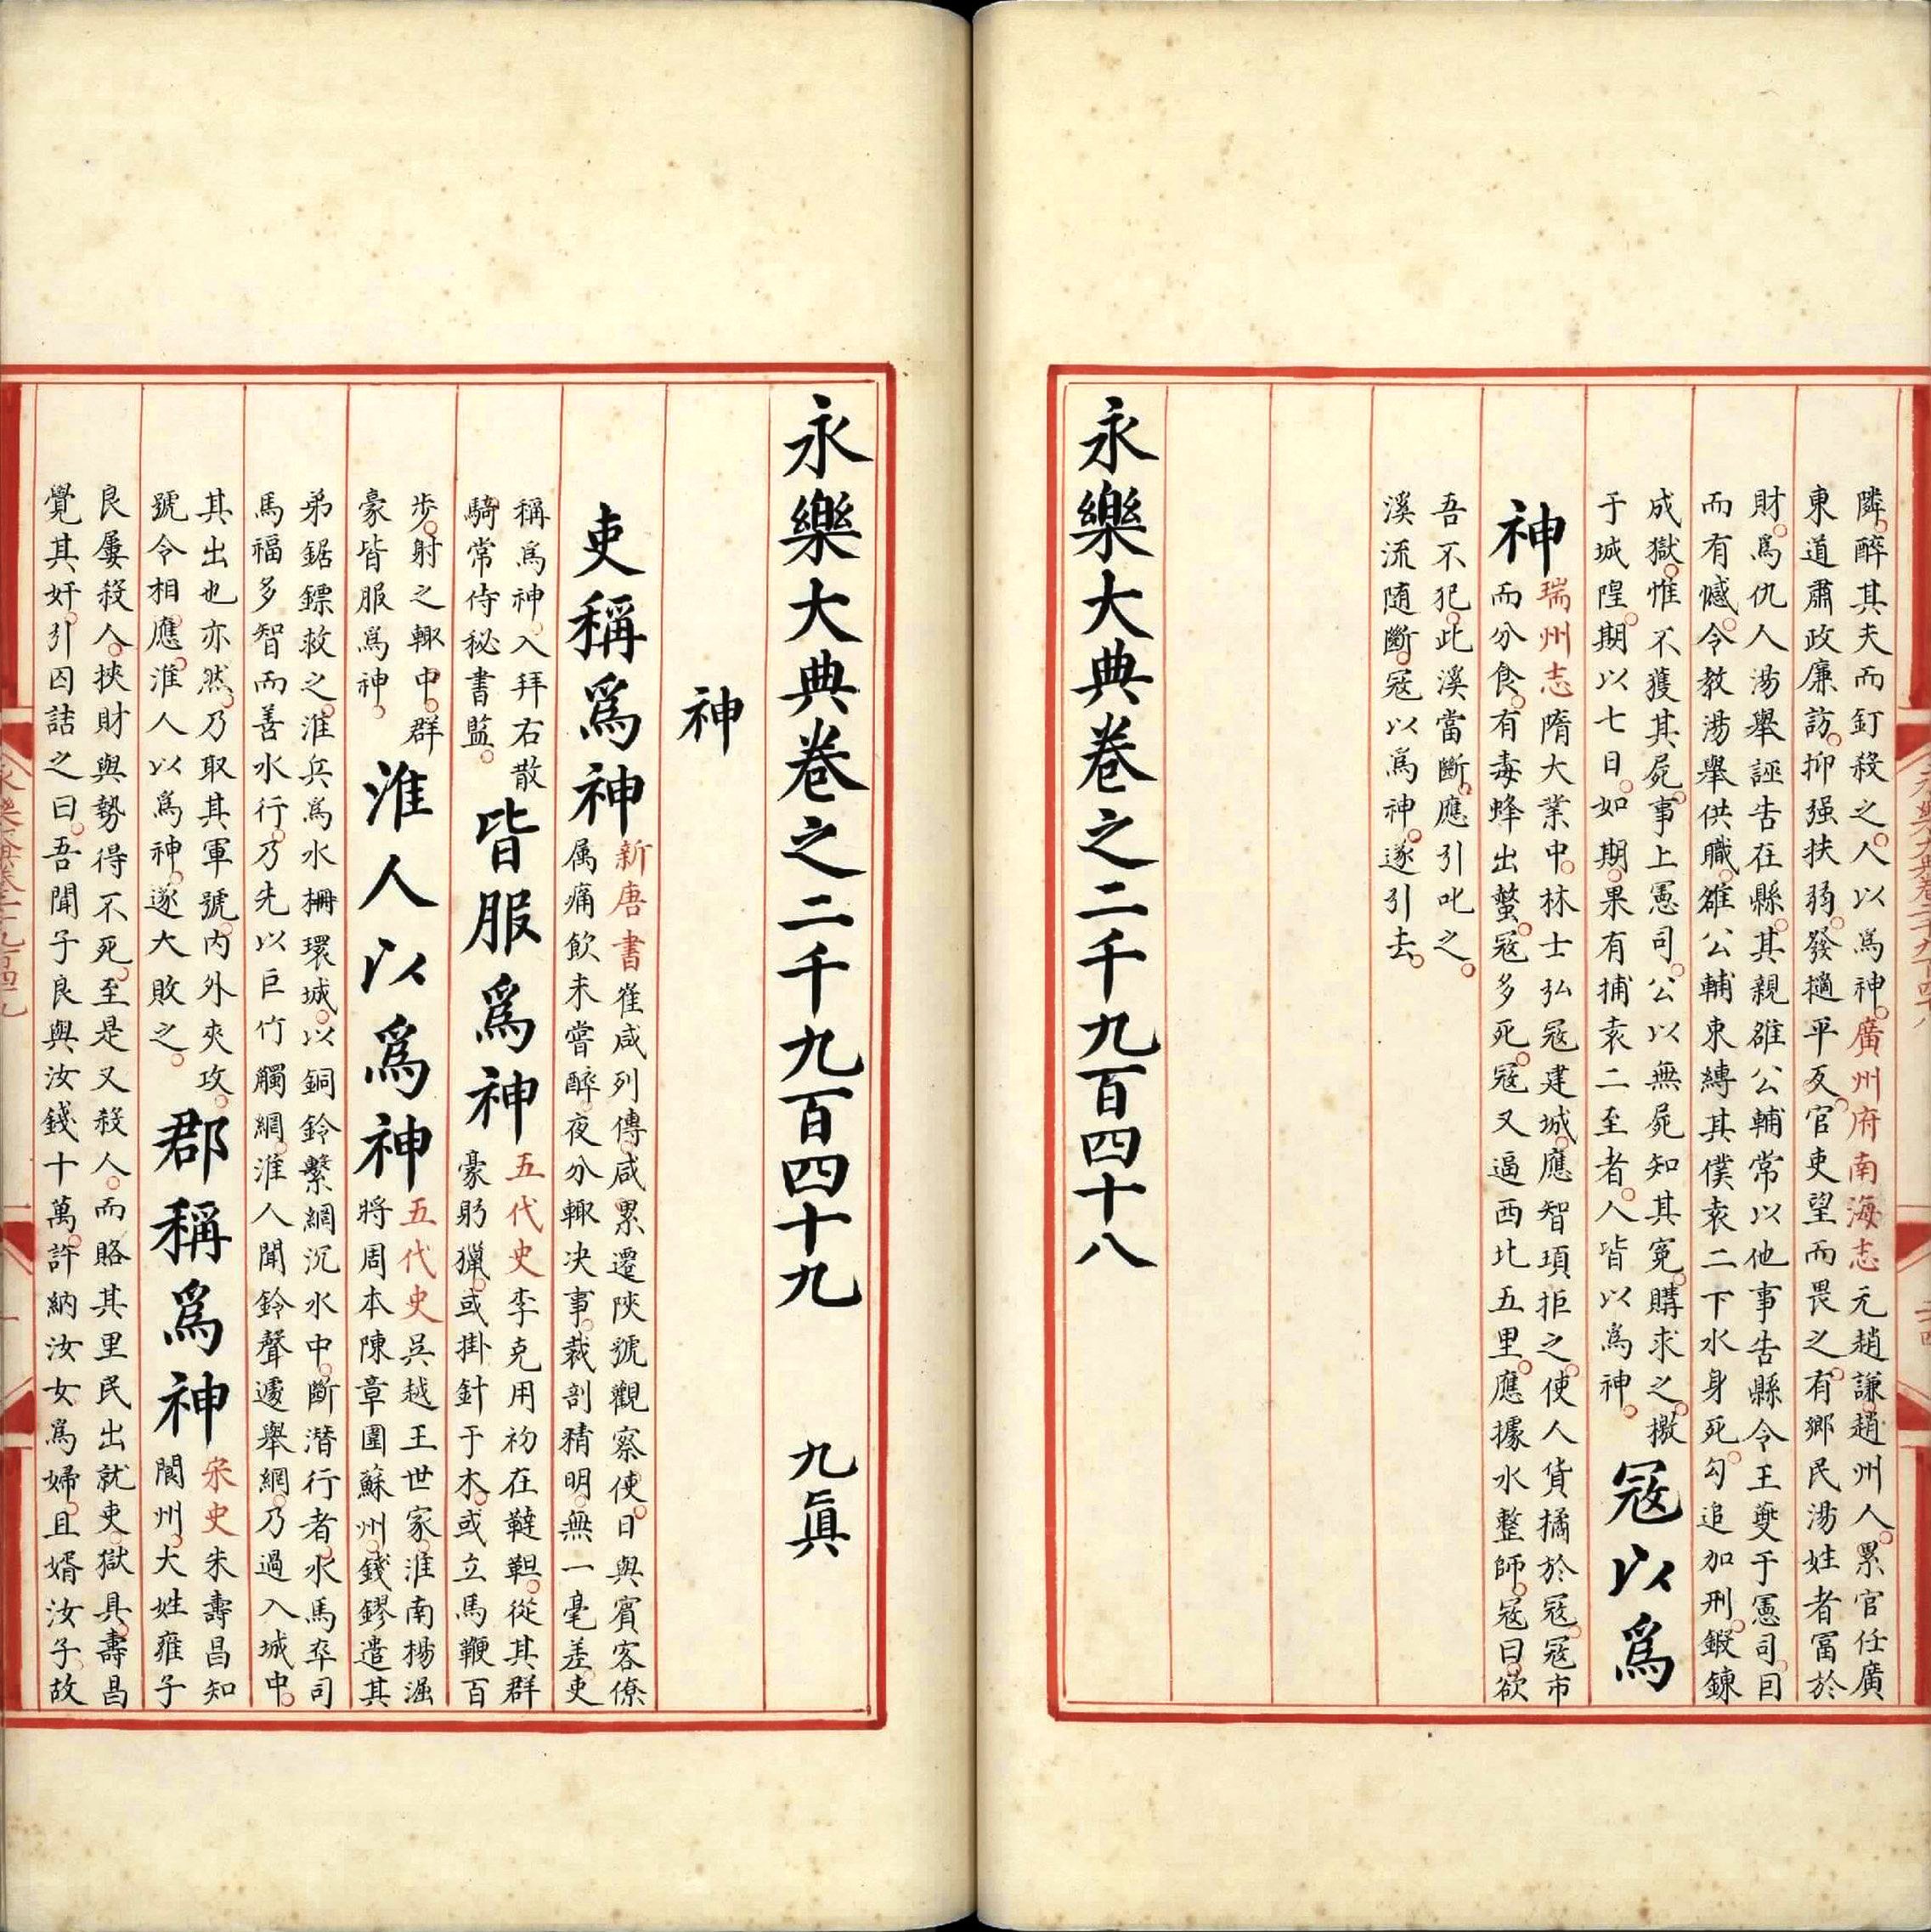 隣醉其夫而釘殺之人以爲神廣州府南海志元趙謙趙州人累官任廣
東道肅政廉訪抑强扶弱發擿平反官吏望而畏之有鄉民湯姓者冨於
財爲仇人湯舉誣告在縣其親雒公輔常以他事告縣令王夔于憲司因
而有憾令教湯舉供職雒公輔束縛其僕袁二下水身死勾追加刑鍜鍊
成獄惟不獲其屍事上憲司公以無屍知其冤購求之檄
于城隍期以七日如期果有捕袁二至者人皆以爲神
冦以爲
神
瑞州志隋大業中林士弘冦建城應智頊拒之使人貨橘於冦冦市
而分食有毒蜂出螫冦多死冦又逼西北五里應據水整師冦曰欲
吾不犯此溪當斷應引叱之
溪流随斷冦以爲神遂引去
永樂大典卷之二千九百四十八
永樂大典卷之二千九百四十九 九眞
神
吏稱爲神
新唐書崔咸列傳咸累遷陝虢觀察使日與賓客僚
属痛飲未嘗醉夜分輙决事裁剖精明無一毫差吏
稱爲神入拜右散
騎常侍秘書監
皆服爲神
五代史李克用初在韃靼從其群
豪射獵或掛針于木或立馬鞭百
步射之輙中群
豪皆服爲神
淮人以爲神
五代史吳越王世家淮南楊渥
將周本陳章圍蘇州錢鏐遣其
弟鋸鏢救之淮兵爲水柵環城以銅鈴繫網沉水中斷潛行者水馬卒司
馬福多智而善水行乃先以巨竹觸網淮人聞鈴聲遽舉網乃過入城中
其出也亦然乃取其軍號内外夾攻
號令相應淮人以爲神遂大敗之
郡稱爲神
宋史朱壽昌知
閬州大姓雍子
良屢殺人挾財與勢得不死至是又殺人而賂其里民出就吏獄具壽昌
覺其奸引囚詰之曰吾聞子良與汝錢十萬許納汝女爲婦且婿汝子故